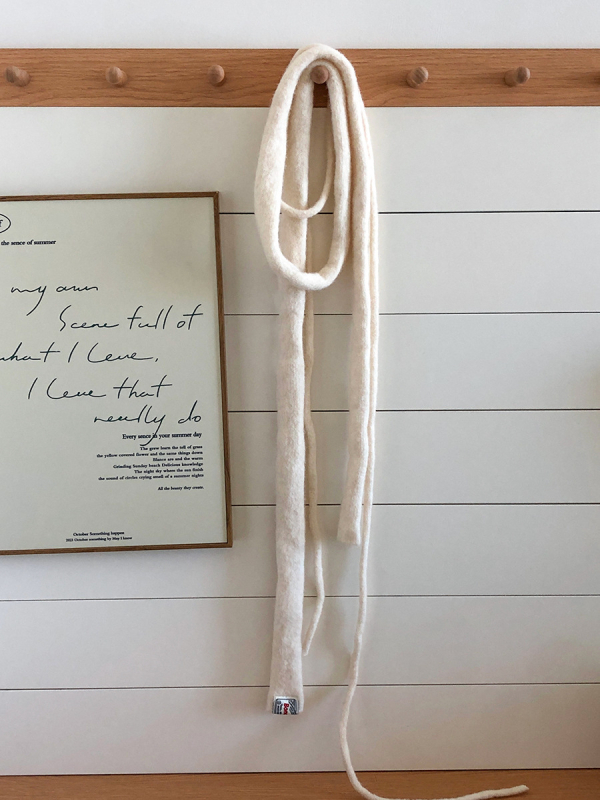 the sence of summer
my own
Scene full of
what I love,
I love that
really do
Every sence in your summer day
The grew learn the tell of grass
the yellow covered flower and the same things down
Blance are and the warm
Grinding Sunday beach Delicious knowledge
The night sky where the sun finish
the sound of circles crying smell of a summer nights
All the beauty they create.
October Something happen
2022 October something by May I know